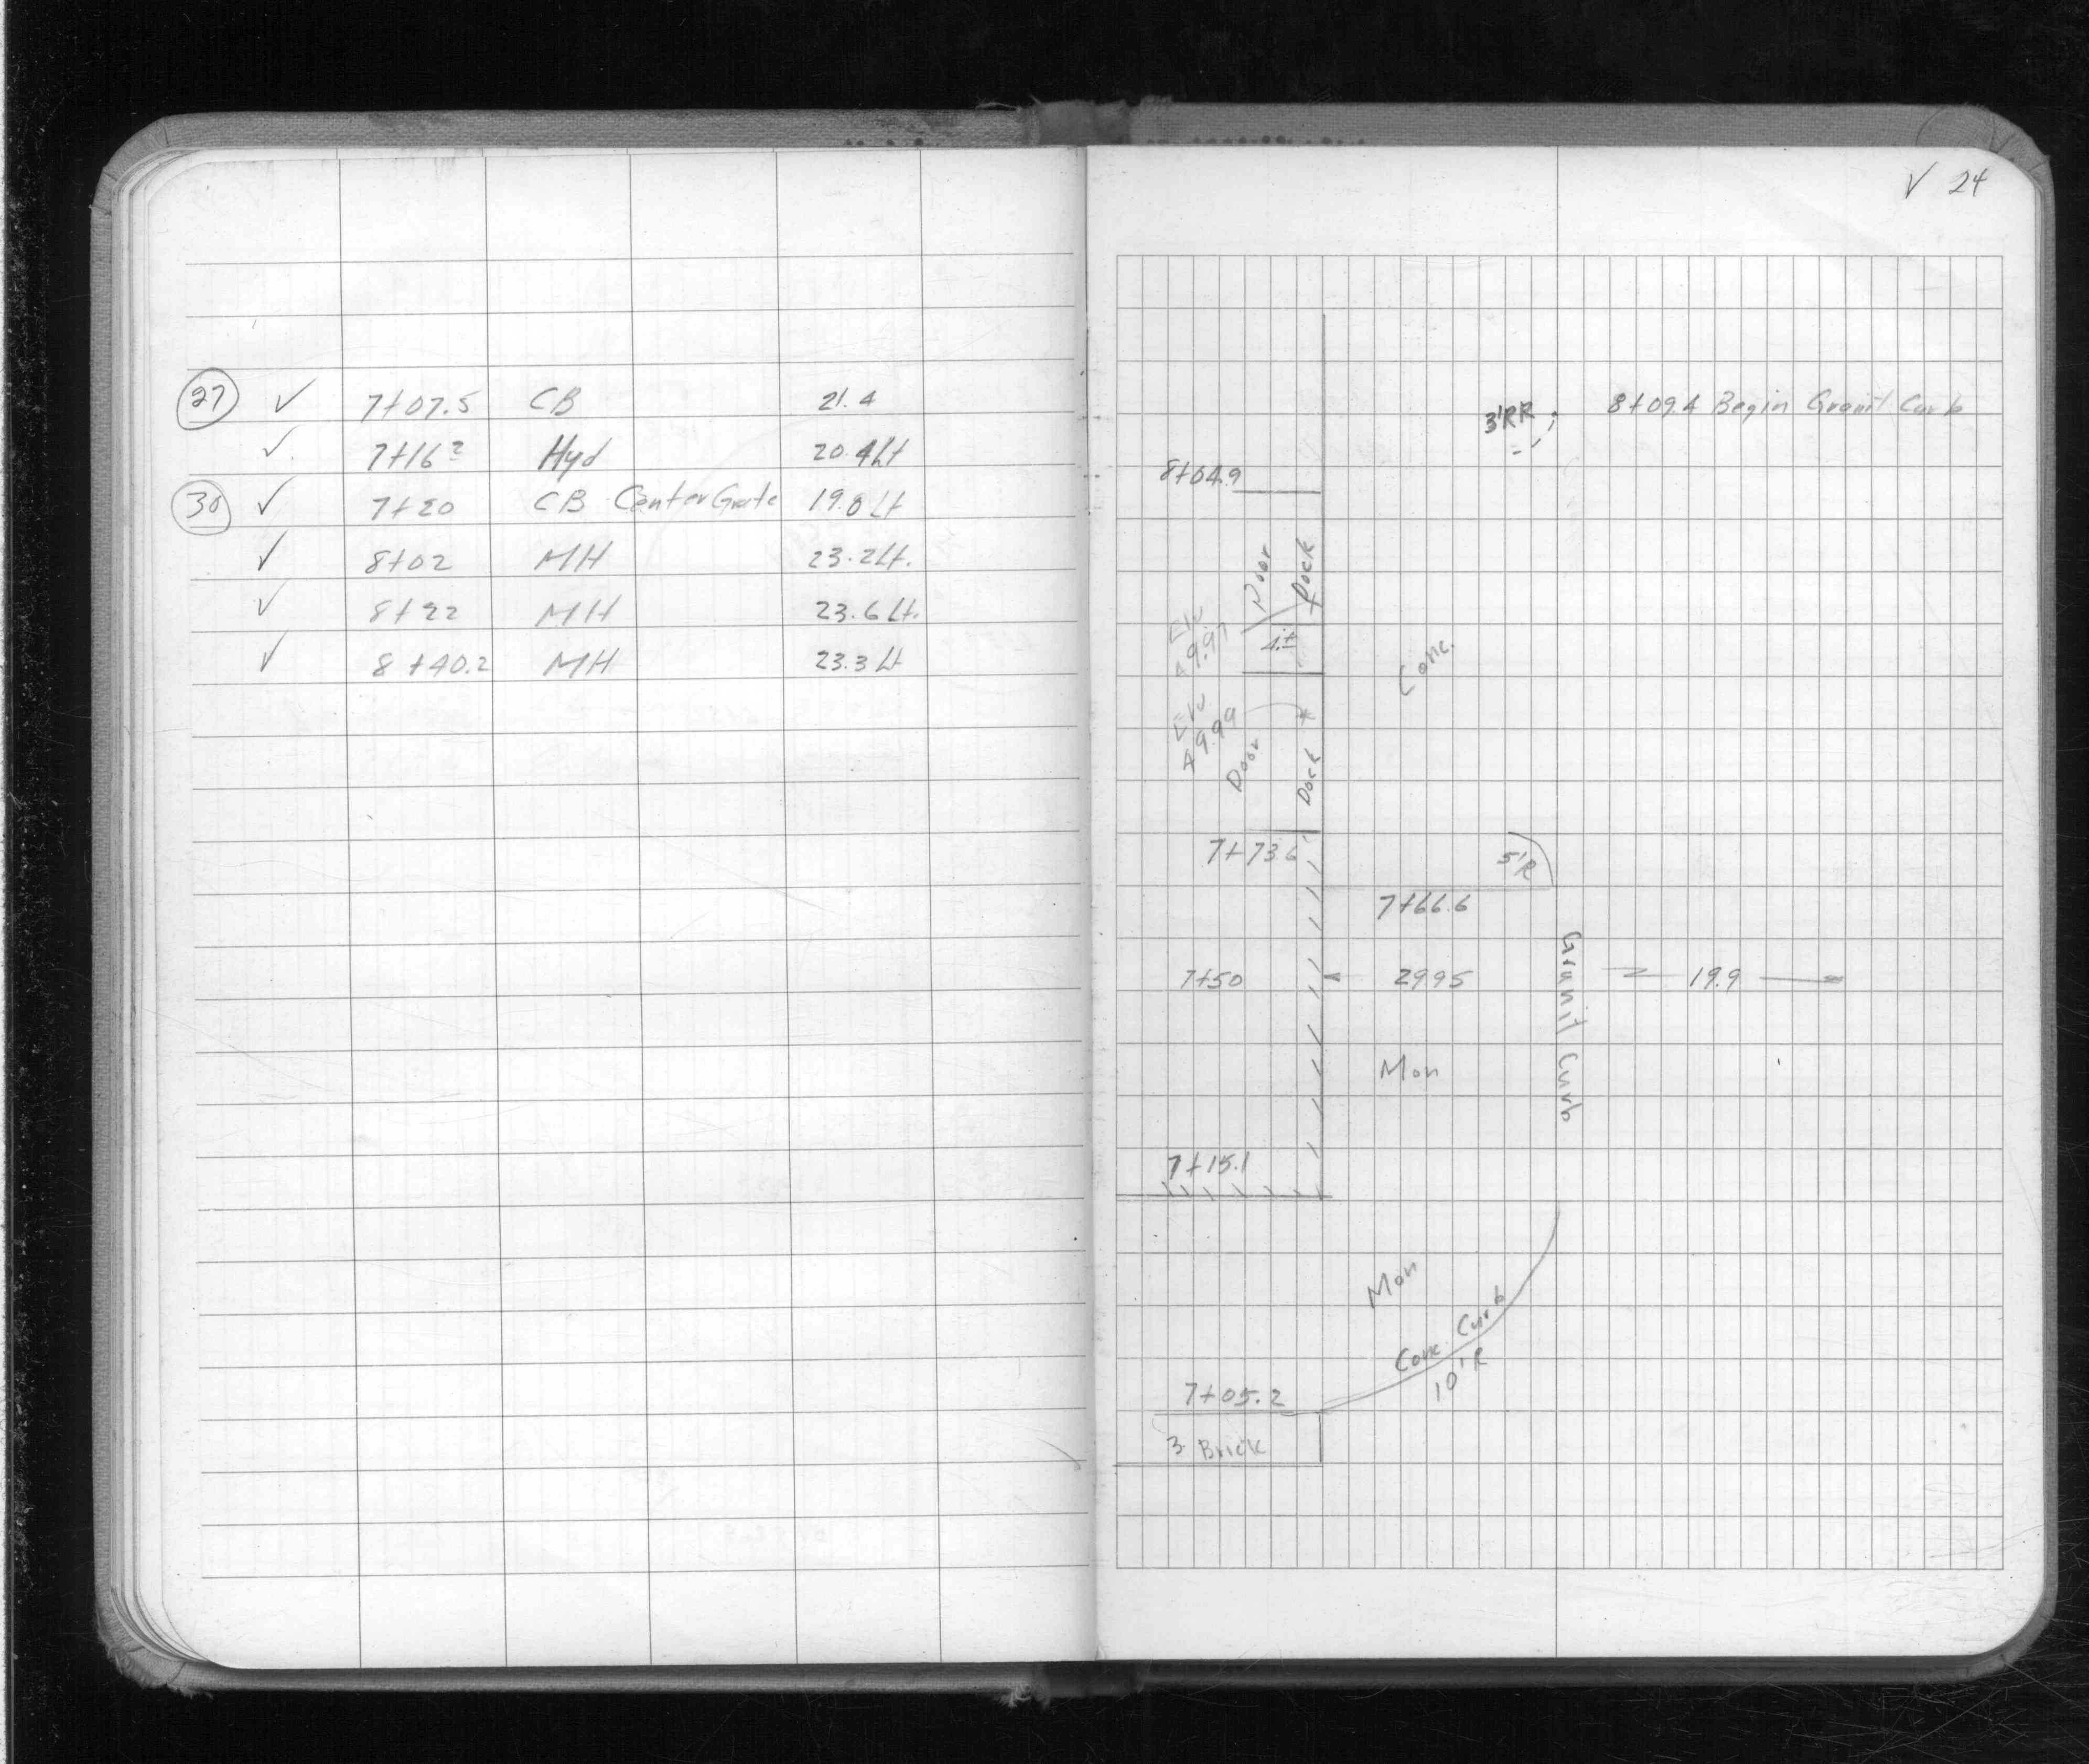 27 ✓ 7+07.5 CB 21.4
✓ 7+16 Hyd 20.4 Lt
30 ✓ 7+20 CB Center Grate 19.8 Lt
✓ 8+02 MH 23.2 Lt.
✓ 8+22 MH 23.6 Lt.
✓ 8+40.2 MH 23.3 Lt
✓ 24
3'RR 8+09.4 Begin Granit Curb
8+04.9
Door Dock
Elv. 49.97
4.±
Conc.
Elv. 49.99
Door Dock
7+73.6
5'R
7+66.6
7+50 29.95 19.9
Granit Curb
Mon
7+15.1
Mon
Conc Curb
10'R
7+05.2
3 Brick